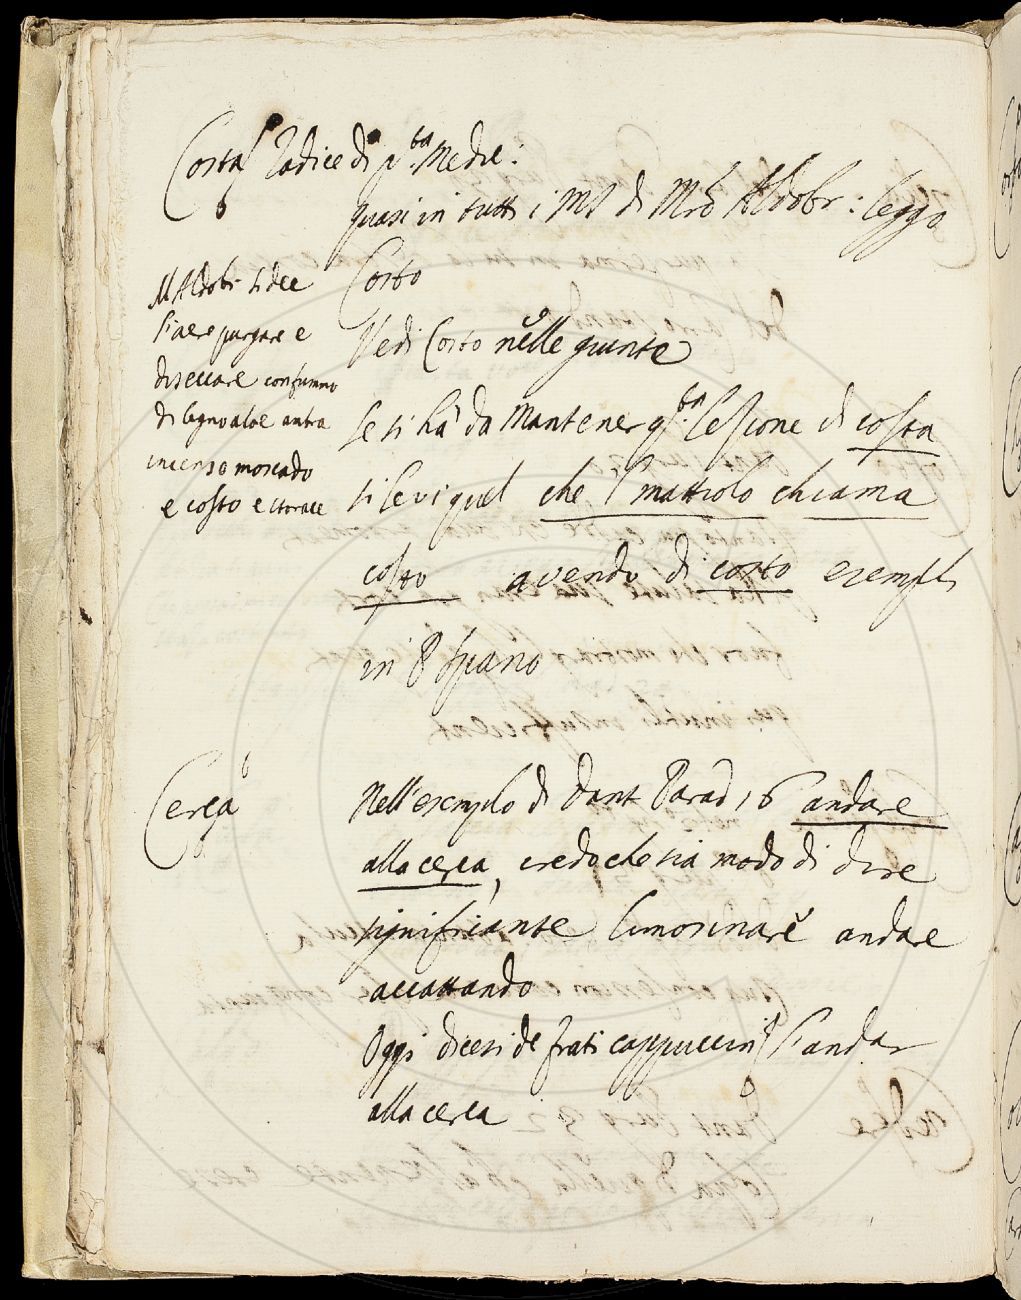 Costa radice di pta Medic:
quasi in tutti i MS di Mro Aldobr: leggo
Costo
Vedi Costo nelle giunte
se si ha da mantener qta lessione di costa
si levi quel che l mattiolo chiama
costo avendo di costo esempli
in P Spano
M Aldobr si dee
l'aere purgare e
diseccare con fummo
di legno aloe ambra
incenso moscado
e costo e storace
Cerca
Nell'esemplo di Dant Parad 16 andare
alla cerca, credo che sia modo di dire
significante limosinare andare
accattando
Oggi dicesi de frati cappuccini l'andar
alla cerca